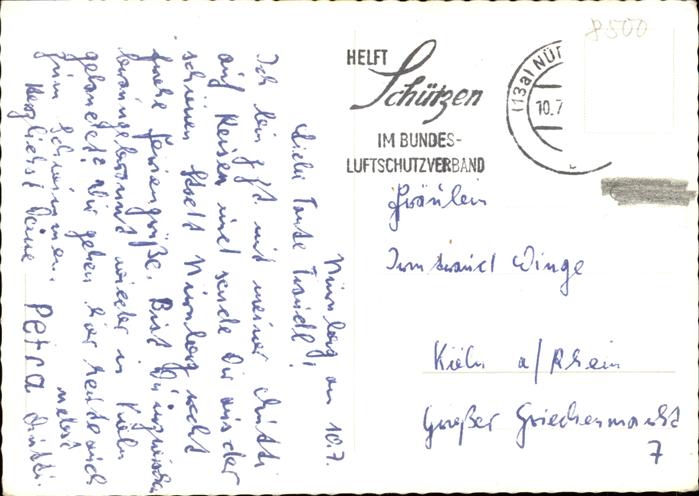 Nürnberg am 10.7.
Liebe Tante Traudl!
Ich bin jetzt mit meiner Mutti
auf Reisen und sende Dir aus der
schönen Stadt Nürnberg recht
frohe Feriengrüße. Bist Du inzwischen
braungebrannt wieder in Köln
gelandet? Wir gehen hier heute auch
zum Schwimmen.
Herzlichst Deine Petra nebst Mutti.
HELFT
Schützen
IM BUNDES-
LUFTSCHUTZVERBAND
(13a) NÜR
10.7
8500
Fräulein
Irmtraud Winge
Köln a/Rhein
Großer Griechenmarkt
7